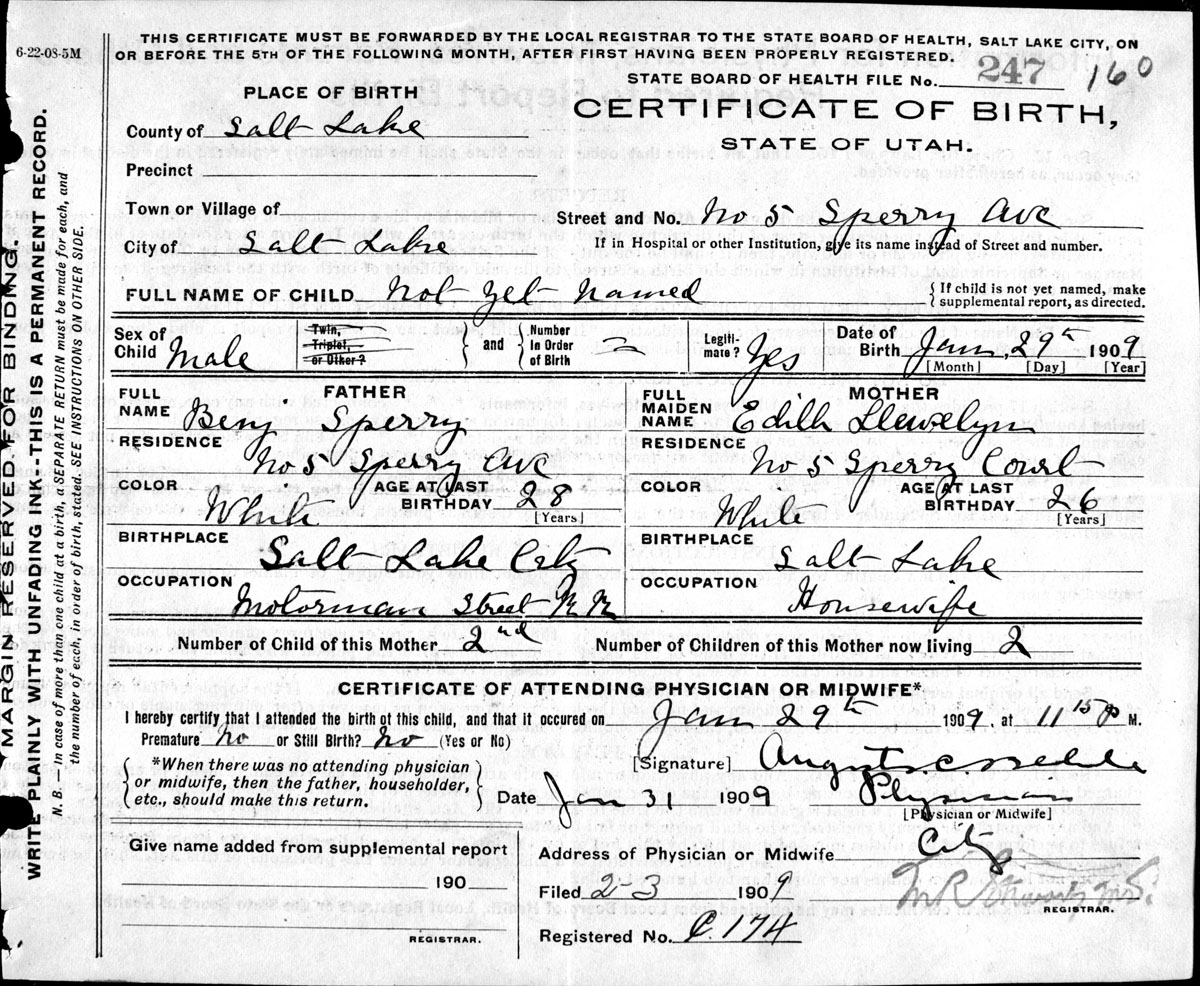 6-22-08-5M
THIS CERTIFICATE MUST BE FORWARDED BY THE LOCAL REGISTRAR TO THE STATE BOARD OF HEALTH, SALT LAKE CITY, ON
OR BEFORE THE 5TH OF THE FOLLOWING MONTH, AFTER FIRST HAVING BEEN PROPERLY REGISTERED.
STATE BOARD OF HEALTH FILE No. 247 160
PLACE OF BIRTH
CERTIFICATE OF BIRTH,
STATE OF UTAH.
County of Salt Lake
Precinct
Town or Village of
Street and No. No 5 Sperry Ave
City of Salt Lake
If in Hospital or other Institution, give its name instead of Street and number.
FULL NAME OF CHILD Not yet named
{ If child is not yet named, make
supplemental report, as directed.
Sex of Child Male
Twin, Triplet, or Other?
and
Number in Order of Birth
Legitimate? Yes
Date of Birth Jan, 29th 1909
[Month] [Day] [Year]
FATHER
FULL NAME Benj Sperry
RESIDENCE
No 5 Sperry Ave
COLOR White AGE AT LAST BIRTHDAY 28
[Years]
BIRTHPLACE
Salt Lake City
OCCUPATION
Motorman Street R R
MOTHER
FULL MAIDEN NAME Edith Llewelyn
RESIDENCE
No 5 Sperry Court
COLOR White AGE AT LAST BIRTHDAY 26
[Years]
BIRTHPLACE
Salt Lake
OCCUPATION
Housewife
Number of Child of this Mother 2nd Number of Children of this Mother now living 2
CERTIFICATE OF ATTENDING PHYSICIAN OR MIDWIFE*
I hereby certify that I attended the birth of this child, and that it occured on Jan 29th 1909, at 11 15 P M.
Premature No or Still Birth? No (Yes or No)
*When there was no attending physician
or midwife, then the father, householder,
etc., should make this return.
[Signature]
Date Jan 31 1909 Physician
[Physician or Midwife]
Give name added from supplemental report
190
REGISTRAR.
Address of Physician or Midwife City
Filed 2-3 1909
REGISTRAR.
Registered No. C.174
MARGIN RESERVED FOR BINDING.
WRITE PLAINLY WITH UNFADING INK--THIS IS A PERMANENT RECORD.
N. B.—In case of more than one child at a birth, a SEPARATE RETURN must be made for each, and
the number of each, in order of birth, stated. SEE INSTRUCTIONS ON OTHER SIDE.